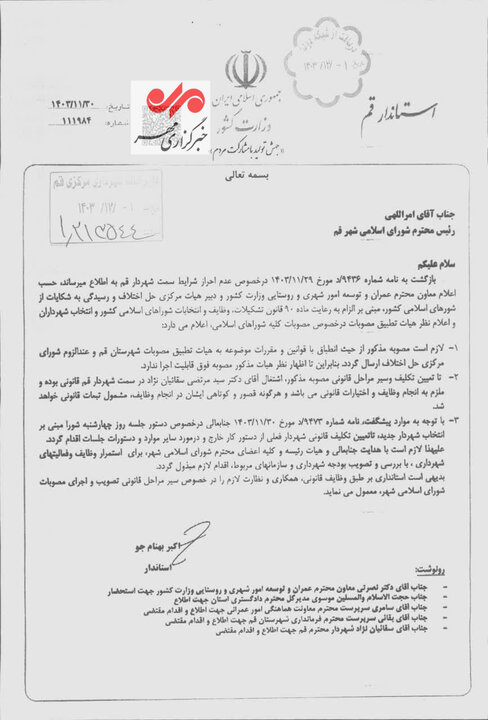 دریافت از شبکه دولت
۱۴۰۳/۱۲/۰۱
استاندار قم
جمهوری اسلامی ایران
وزارت کشور
«جهش تولید با مشارکت مردم»
تاریخ: ۱۴۰۳/۱۱/۳۰
شماره: ۱۱۱۹۸۴
خبرگزاری مهر
بسمه تعالی
۱۴۰۳/۱۲/۰۱
جناب آقای امراللهی
رئیس محترم شورای اسلامی شهر قم
سلام علیکم
بازگشت به نامه شماره ۹۴۳۶/د مورخ ۱۴۰۳/۱۱/۲۹ درخصوص عدم احراز شرایط سمت شهردار قم به اطلاع میرساند، حسب
اعلام معاون محترم عمران و توسعه امور شهری و روستایی وزارت کشور و دبیر هیات مرکزی حل اختلاف و رسیدگی به شکایات از
شورهای اسلامی کشور، مبنی بر الزام به رعایت ماده ۹۰ قانون تشکیلات، وظایف و انتخابات شوراهای اسلامی کشور و انتخاب شهرداران
و اعلام نظر هیات تطبیق مصوبات درخصوص مصوبات کلیه شوراهای اسلامی، اعلام می دارد:
۱- لازم است مصوبه مذکور از حیث انطباق با قوانین و مقررات موضوعه به هیات تطبیق مصوبات شهرستان قم و عندالزوم شورای
مرکزی حل اختلاف ارسال گردد. بنابراین تا اظهار نظر هیات مذکور مصوبه فوق قابلیت اجرا ندارد.
۲- تا تعیین تکلیف وسیر مراحل قانونی مصوبه مذکور، اشتغال آقای دکتر سید مرتضی سقائیان نژاد در سمت شهردار قم قانونی بوده و
ملزم به انجام وظایف و اختیارات قانونی می باشد و هرگونه قصور و کوتاهی ایشان در انجام وظایف، مشمول تبعات قانونی خواهد
شد.
۳- با توجه به موارد پیشگفت، نامه شماره ۹۴۷۳/د مورخ ۱۴۰۳/۱۱/۳۰ جنابعالی درخصوص دستور جلسه روز چهارشنبه شورا مبنی بر
انتخاب شهردار جدید، تاتعیین تکلیف قانونی شهردار فعلی از دستور کار خارج و درمورد سایر موارد و دستورات جلسات اقدام گردد.
علیهذا لازم است با هدایت جنابعالی و هیات رئیسه و کلیه اعضای محترم شورای اسلامی شهر، برای استمرار وظایف وفعالیتهای
شهرداری ، با بررسی و تصویب بودجه شهرداری و سازمانهای مربوط، اقدام لازم مبذول گردد.
بدیهی است استانداری بر طبق وظایف قانونی، همکاری و نظارت لازم را در خصوص سیر مراحل قانونی تصویب و اجرای مصوبات
شورای اسلامی شهر، معمول می نماید.
اکبر بهنام جو
استاندار
رونوشت:
- جناب آقای دکتر نصرتی معاون محترم عمران و توسعه امور شهری و روستایی وزارت کشور جهت استحضار
- جناب حجت الاسلام والمسلین موسوی مدیرکل محترم دادگستری استان جهت اطلاع
- جناب آقای سامری سرپرست محترم معاونت هماهنگی امور عمرانی جهت اطلاع و اقدام مقتضی
- جناب آقای بقائی سرپرست محترم فرمانداری شهرستان قم جهت اطلاع و اقدام مقتضی
- جناب آقای سقائیان نژاد شهردار محترم قم جهت اطلاع و اقدام مقتضی